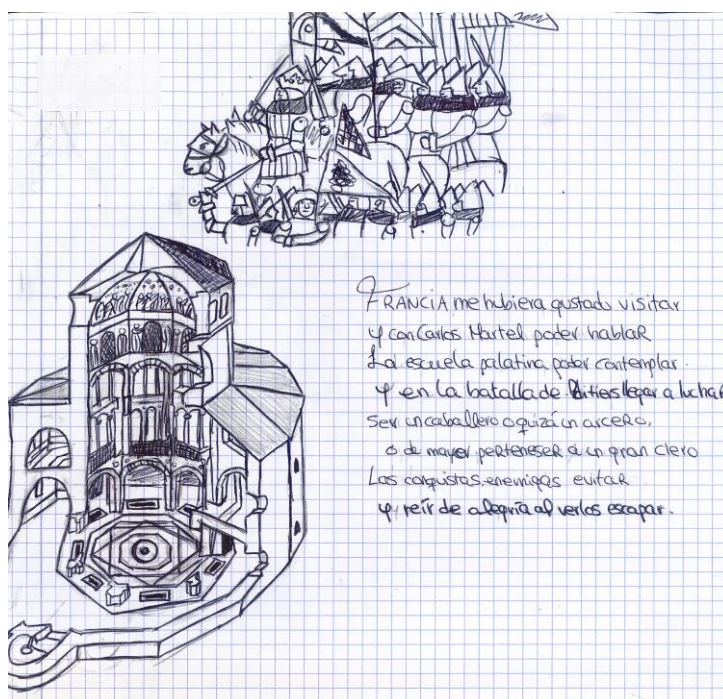 FRANCIA me hubiera gustado visitar
y con Carlos Martel poder hablar
La escuela palatina poder contemplar.
y en la batalla de Poitiers llegar a luchar
Ser un caballero o quizá un arcero,
o de mayor perteneser a un gran clero
Las conquistas enemigas evitar
y reír de alegría al verlos escapar.